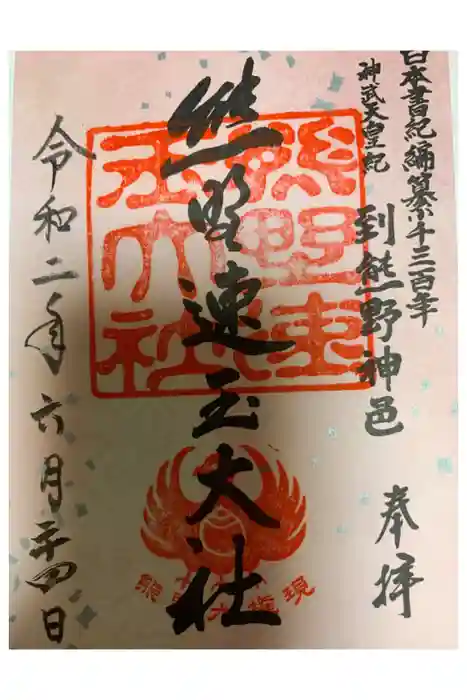 日本書紀編纂千三百年
神武天皇紀
到熊野神邑
奉拝
熊野速玉大社
熊野速玉大社
令和二年六月廿四日